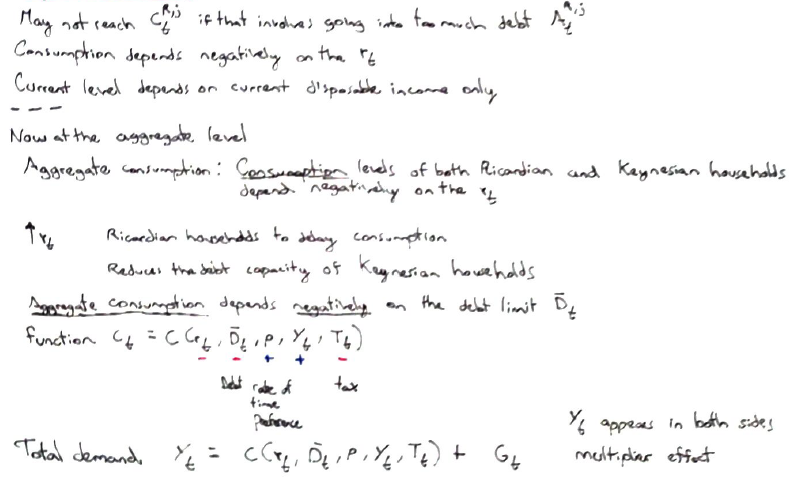 May not reach C_t^{R,j} if that involves going into too much debt A_t^{R,j}
Consumption depends negatively on the r_t
Current level depends on current disposable income only
---
Now at the aggregate level
Aggregate consumption: Consumption levels of both Ricardian and Keynesian households
depend negatively on the r_t
↑r_t Ricardian households to delay consumption
Reduces the debt capacity of Keynesian households
Aggregate consumption depends negatively on the debt limit D̄_t
function C_t = C(r_t, D̄_t, ρ, Y_t, T_t)
- - + + -
Debt rate of time preference tax
Y_t appears in both sides
Total demand Y_t = C(r_t, D̄_t, ρ, Y_t, T_t) + G_t multiplier effect